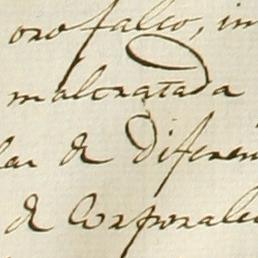 oro falso, in
maltratada
lar de diferen
de Corporales